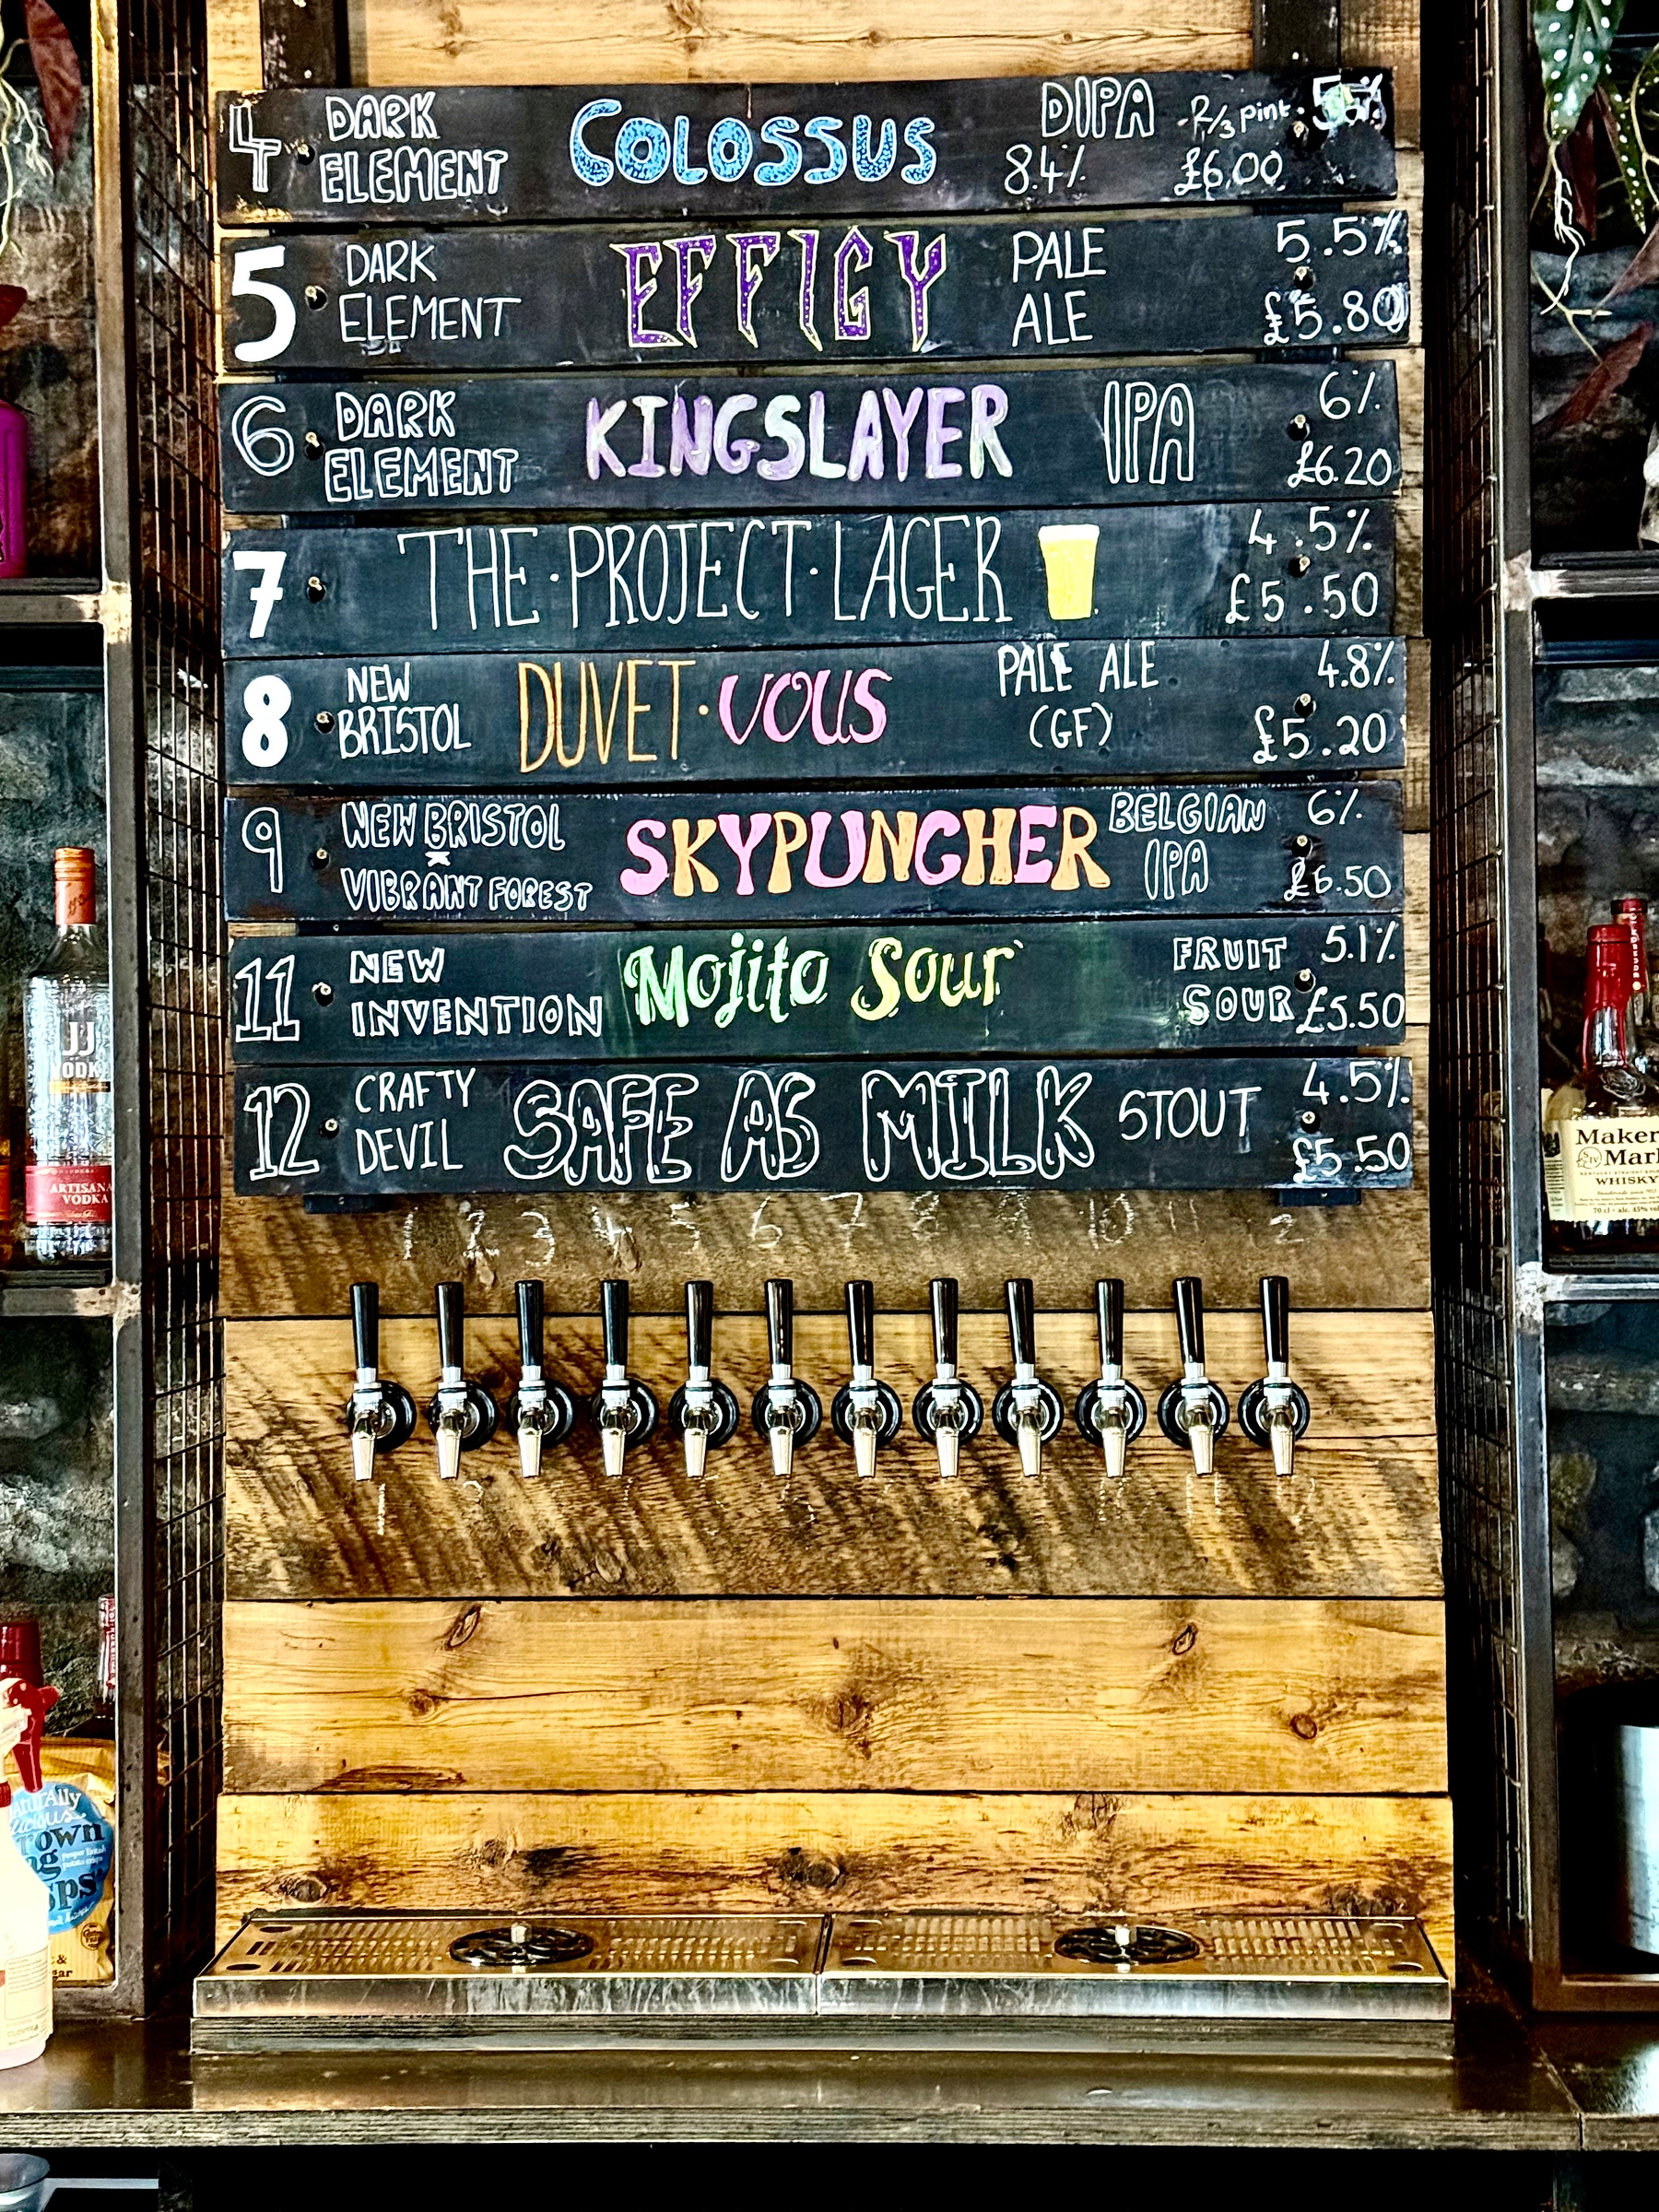 4 DARK ELEMENT COLOSSUS DIPA 8.4% 2/3 pint £6.00
5 DARK ELEMENT EFFIGY PALE ALE 5.5% £5.80
6 DARK ELEMENT KINGSLAYER IPA 6% £6.20
7 THE·PROJECT·LAGER 4.5% £5.50
8 NEW BRISTOL DUVET·VOUS PALE ALE (GF) 4.8% £5.20
9 NEW BRISTOL x VIBRANT FOREST SKYPUNCHER BELGIAN IPA 6% £6.50
11 NEW INVENTION Mojito Sour FRUIT SOUR 5.1% £5.50
12 CRAFTY DEVIL SAFE AS MILK STOUT 4.5% £5.50
1 2 3 4 5 6 7 8 9 10 11 12
JJ
VODKA
ARTISANAL
VODKA
Maker
Mark
WHISKY